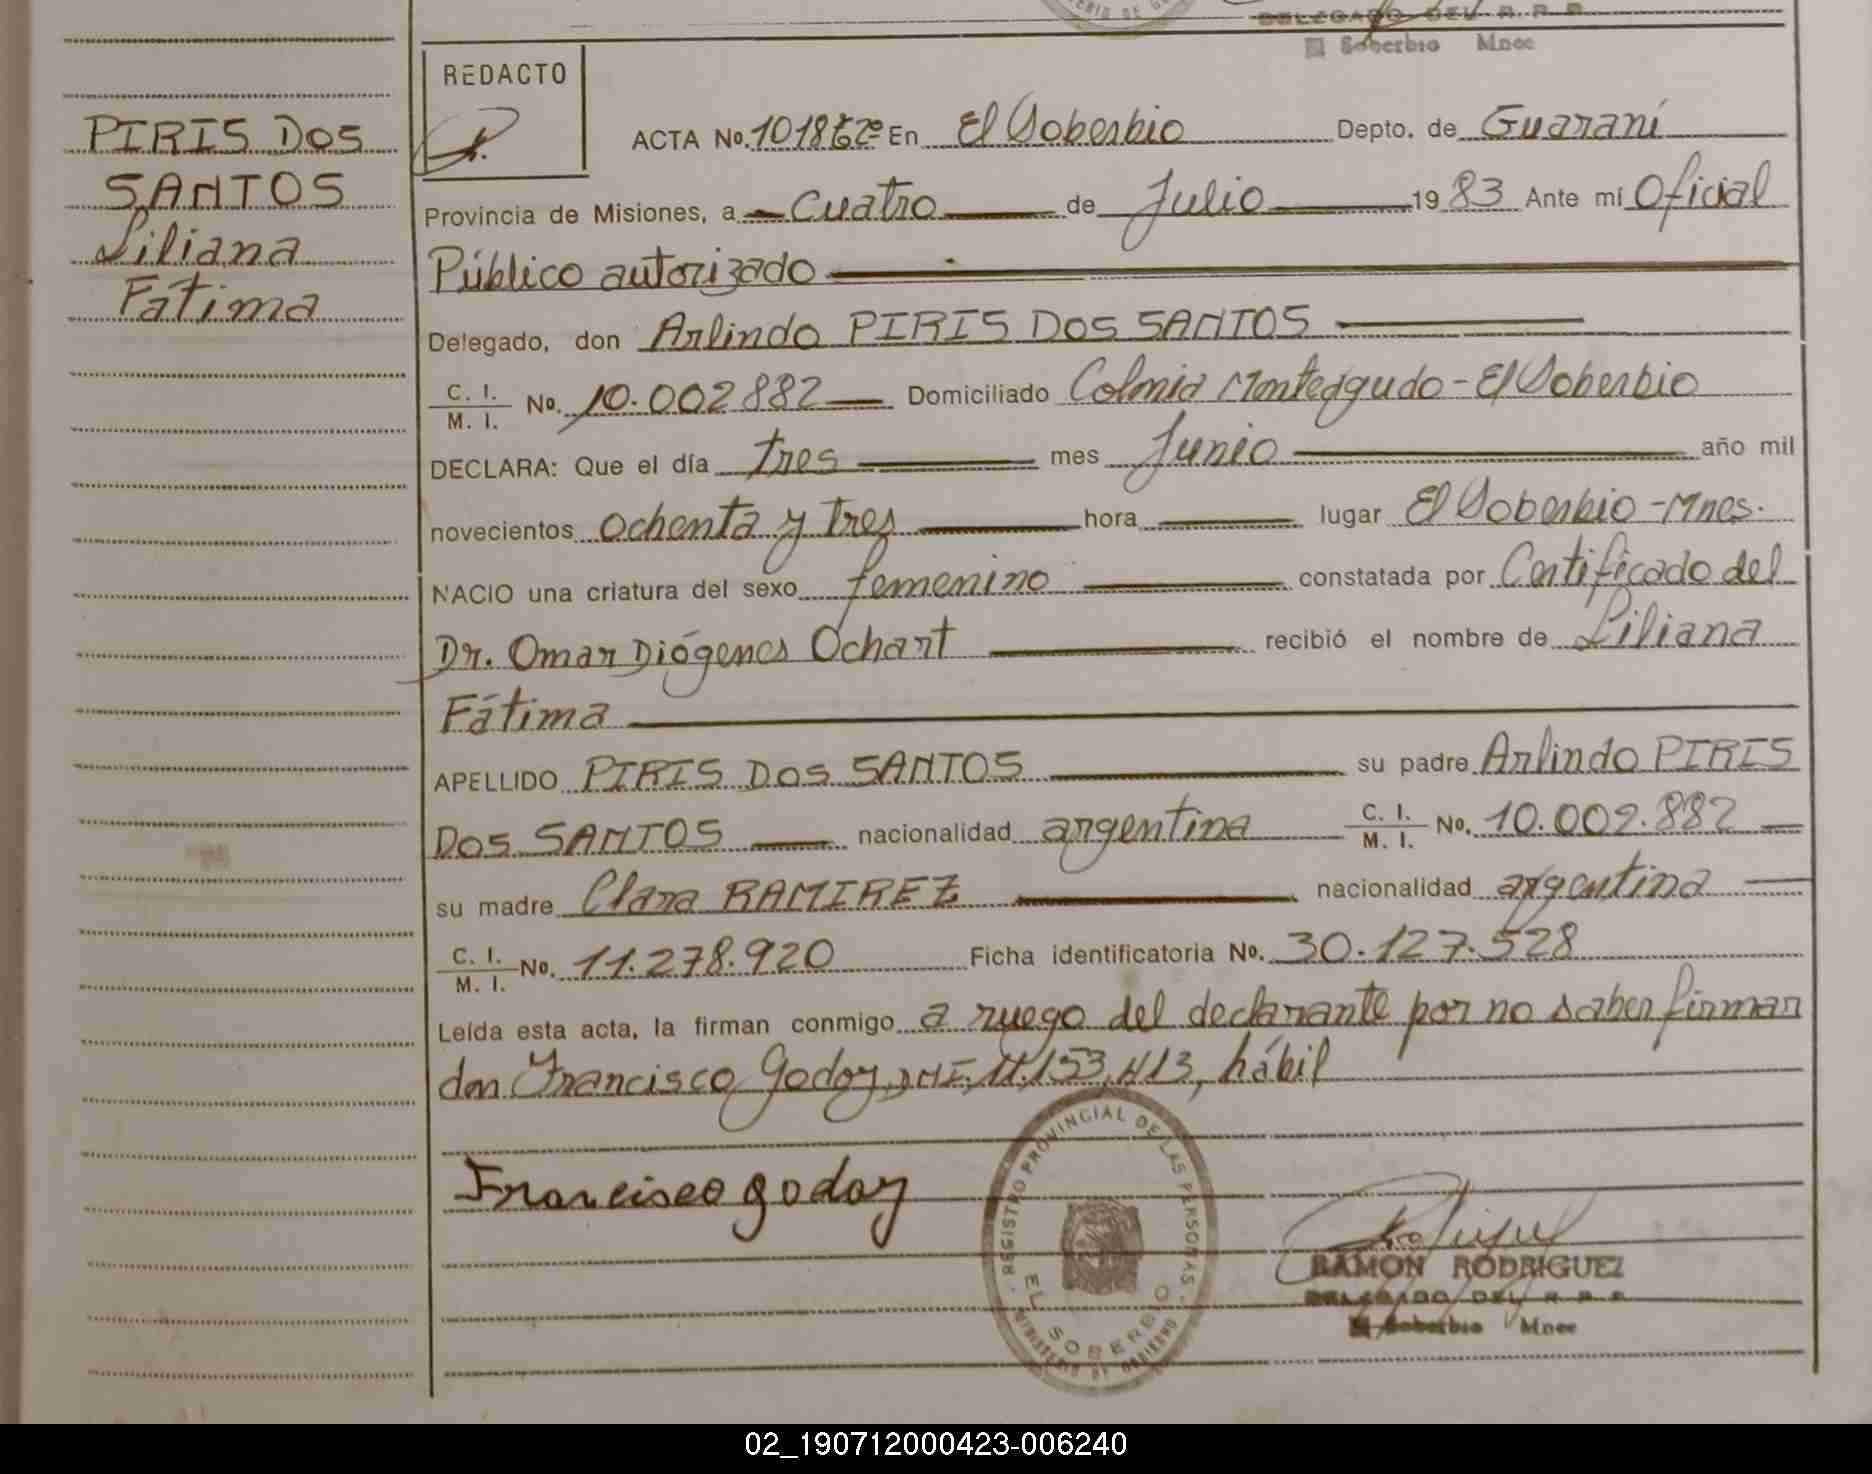 DELEGADO DEL R.R.P.
El Soberbio Mnes
REDACTO
PIRIS DOS
SANTOS
Liliana
Fátima
ACTA No. En El Soberbio Depto. de Guaraní
Provincia de Misiones, a Cuatro de Julio 1983 Ante mí Oficial
Público autorizado
Delegado, don Arlindo PIRIS DOS SANTOS
C. I. / M. I. No. 10.002882 Domiciliado Colonia Monteagudo - El Soberbio
DECLARA: Que el día tres mes Junio año mil
novecientos ochenta y tres hora lugar El Soberbio - Mnes.
NACIO una criatura del sexo femenino constatada por Certificado del
Dr. Omar Diógenes Ochart recibió el nombre de Liliana
Fátima
APELLIDO PIRIS DOS SANTOS su padre Arlindo PIRIS
DOS SANTOS nacionalidad argentina C. I. / M. I. No. 10.002.882
su madre Clara RAMIREZ nacionalidad argentina
C. I. / M. I. No. 11.278.920 Ficha identificatoria No. 30.127.528
Leída esta acta, la firman conmigo a ruego del declarante por no saber firmar
don Francisco Godoy, 153.413, hábil
Francisco godoy
REGISTRO PROVINCIAL DE LAS PERSONAS
EL SOBERBIO
MINISTERIO DE GOBIERNO
RAMON RODRIGUEZ
DELEGADO DEL R. R. P.
El Soberbio Mnes
02_190712000423-006240